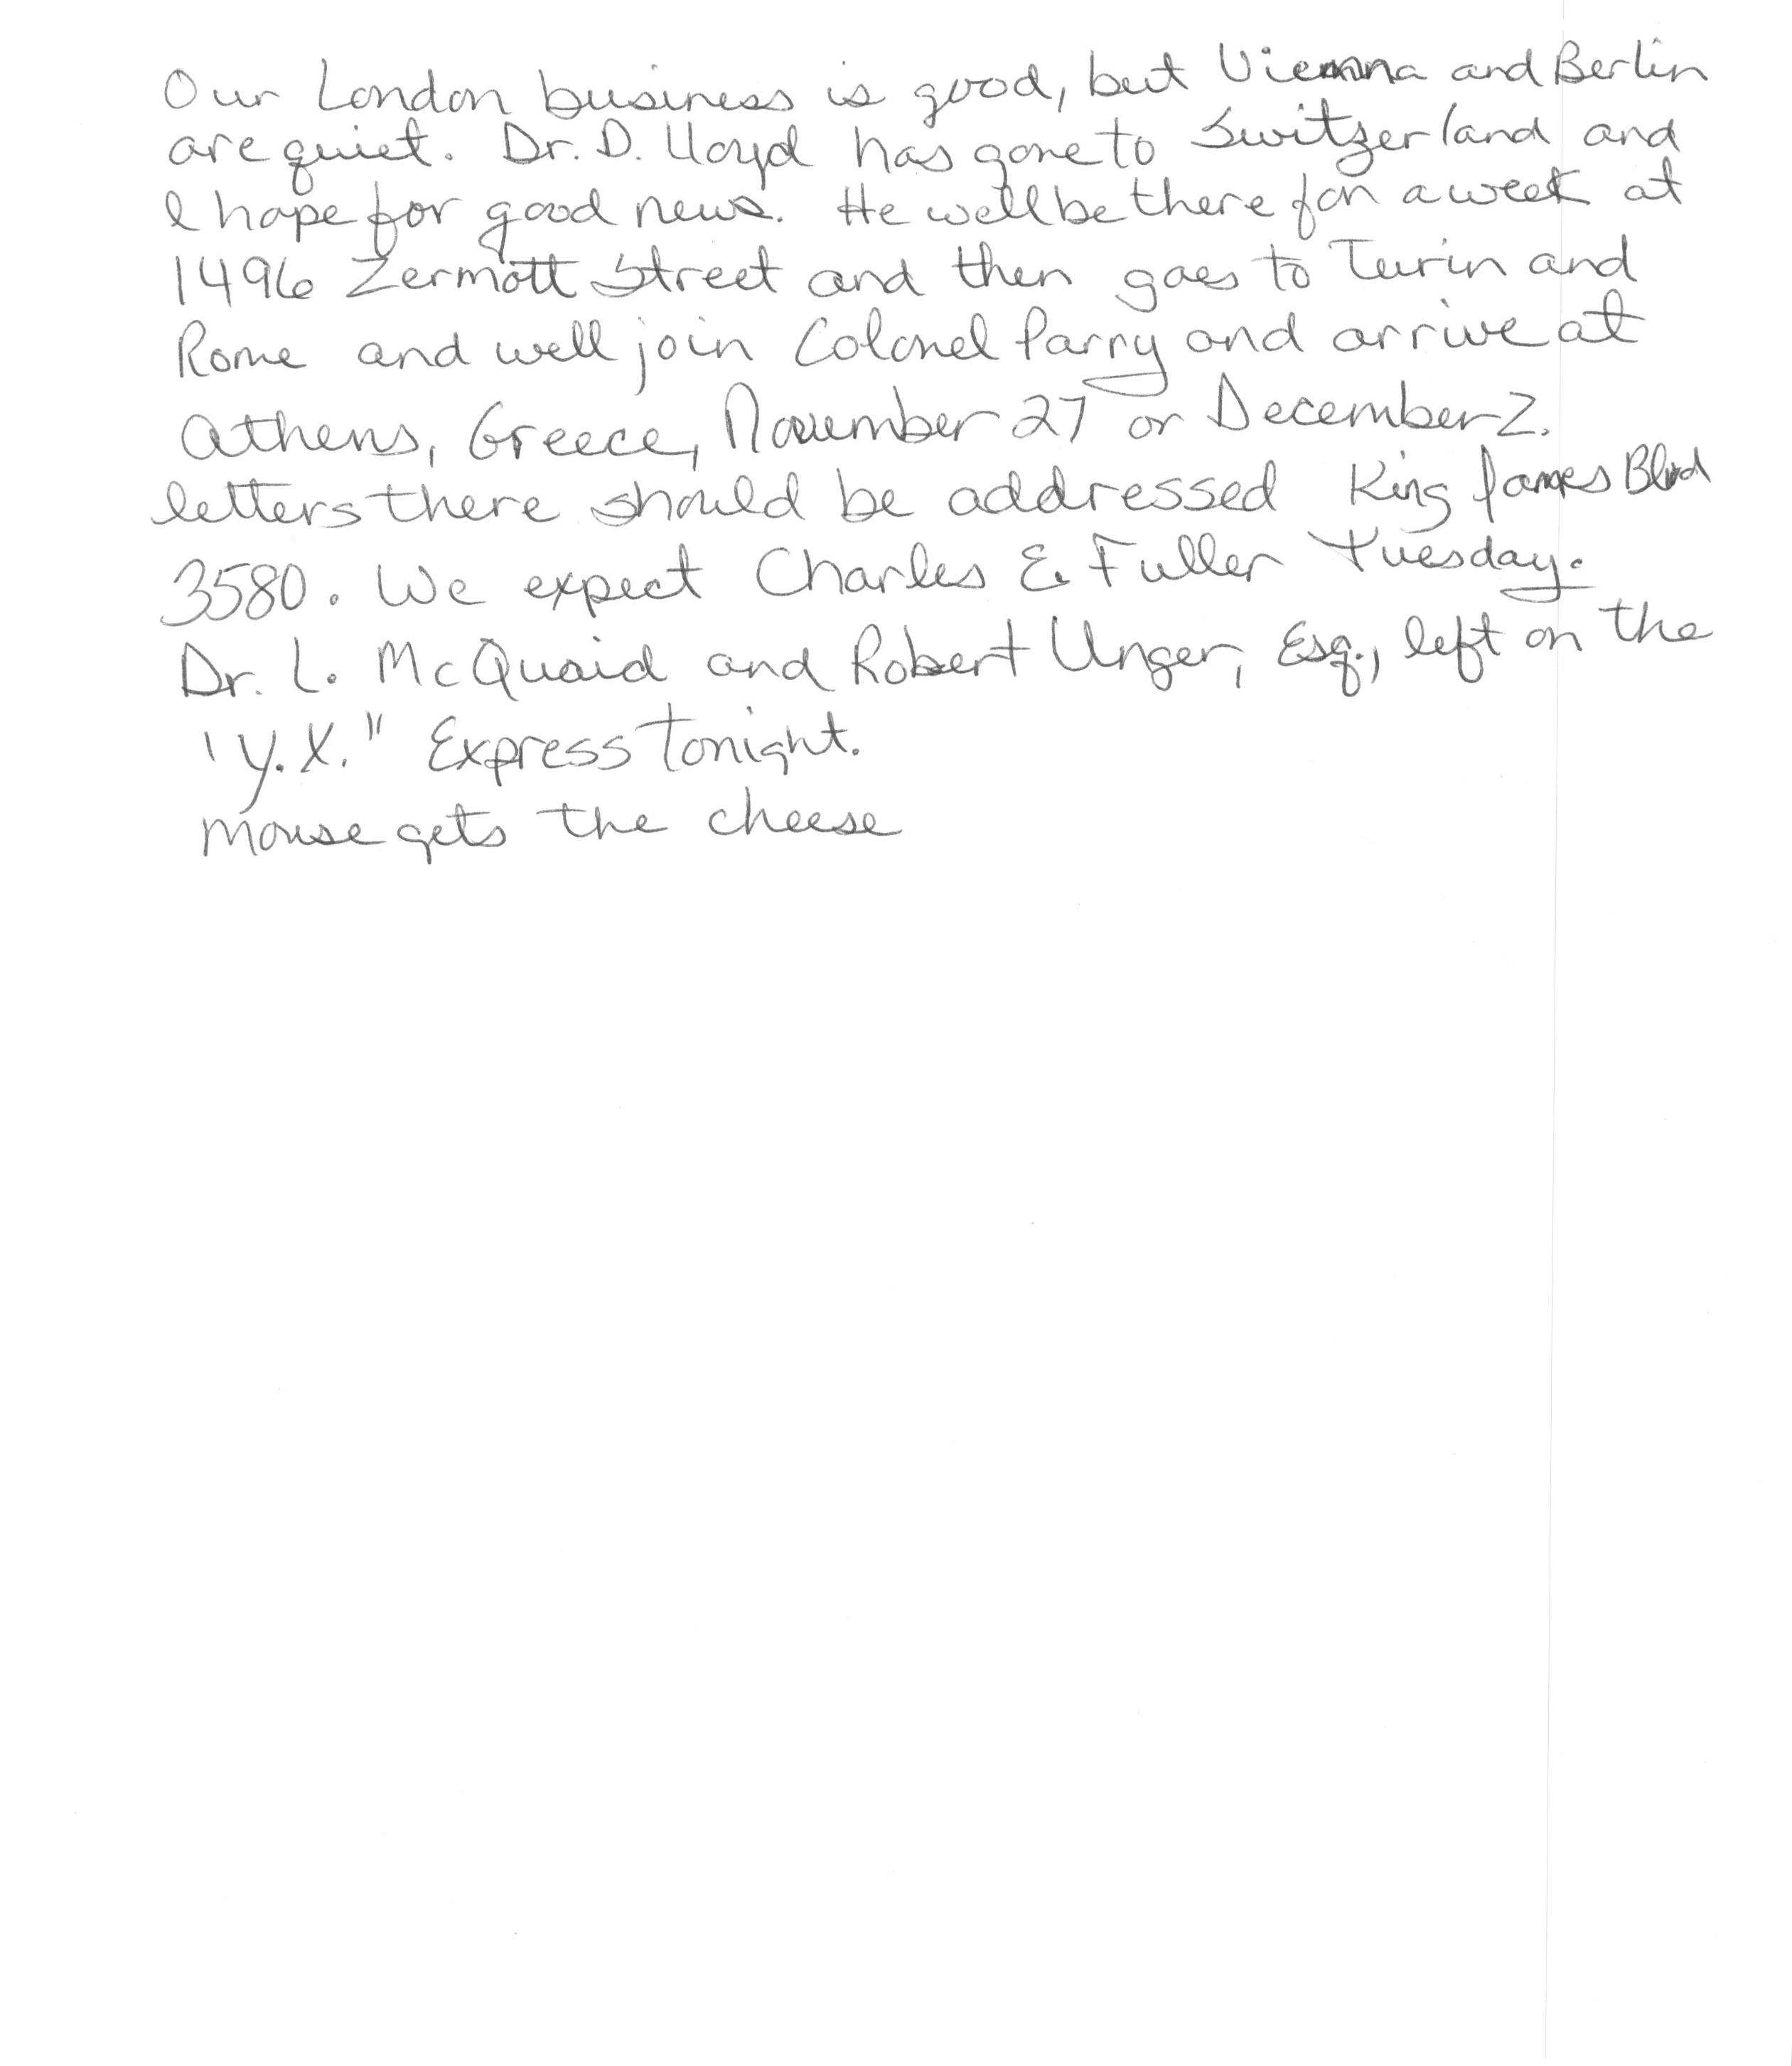 Our London business is good, but Vienna and Berlin
are quiet. Dr. D. Lloyd has gone to Switzerland and
I hope for good news. He will be there for a week at
1496 Zermott Street and then goes to Turin and
Rome and will join Colonel Parry and arrive at
Athens, Greece, November 27 or December 2.
letters there should be addressed King James Blvd
3580. We expect Charles E. Fuller Tuesday.
Dr. L. McQuaid and Robert Unger, Esq., left on the
"Y.X." Express tonight.
mouse gets the cheese